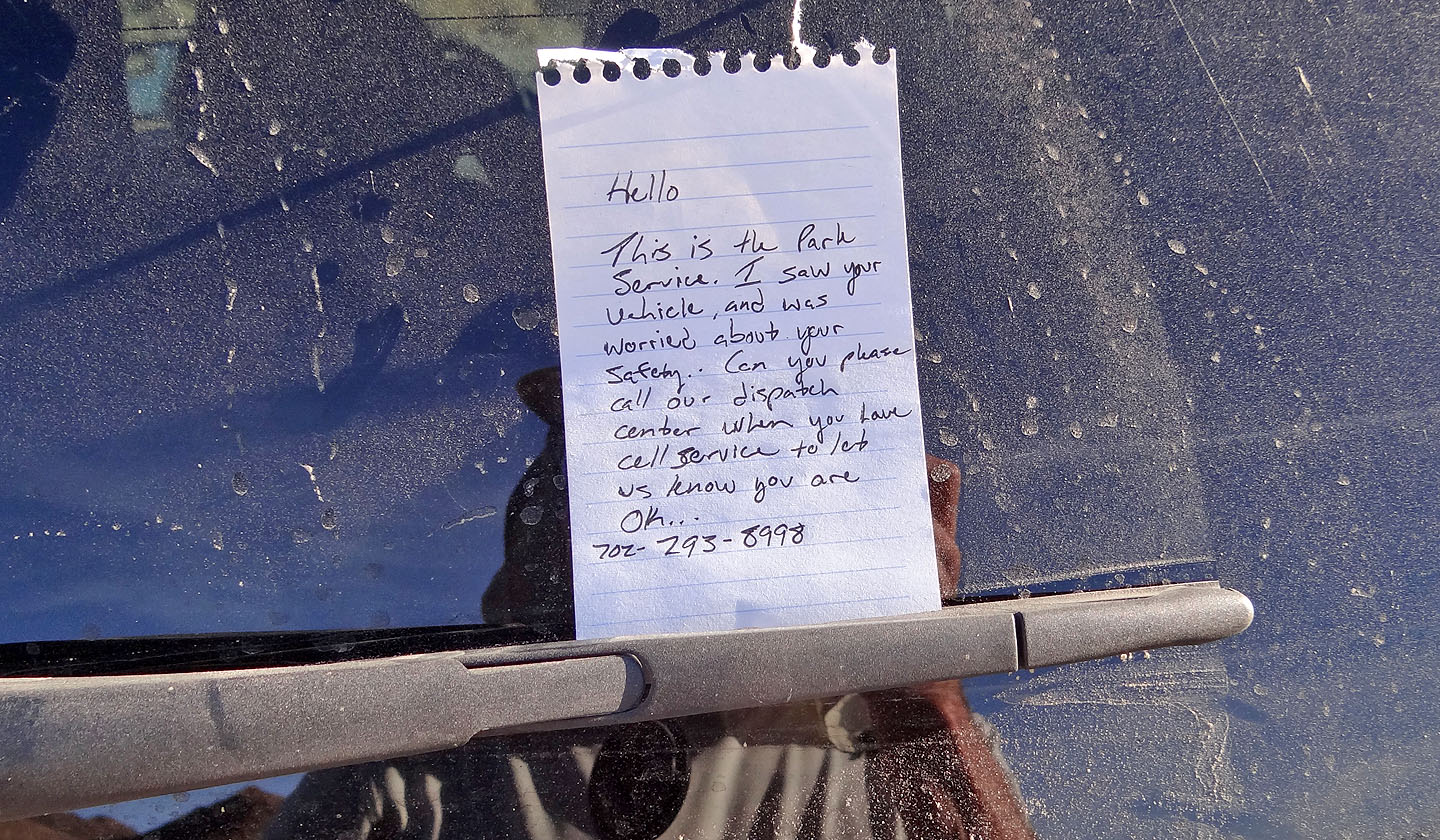 Hello
This is the Park
Service. I saw your
vehicle, and was
worried about your
safety.. Can you please
call our dispatch
center when you have
cell service to let
us know you are
OK...
702-293-8998